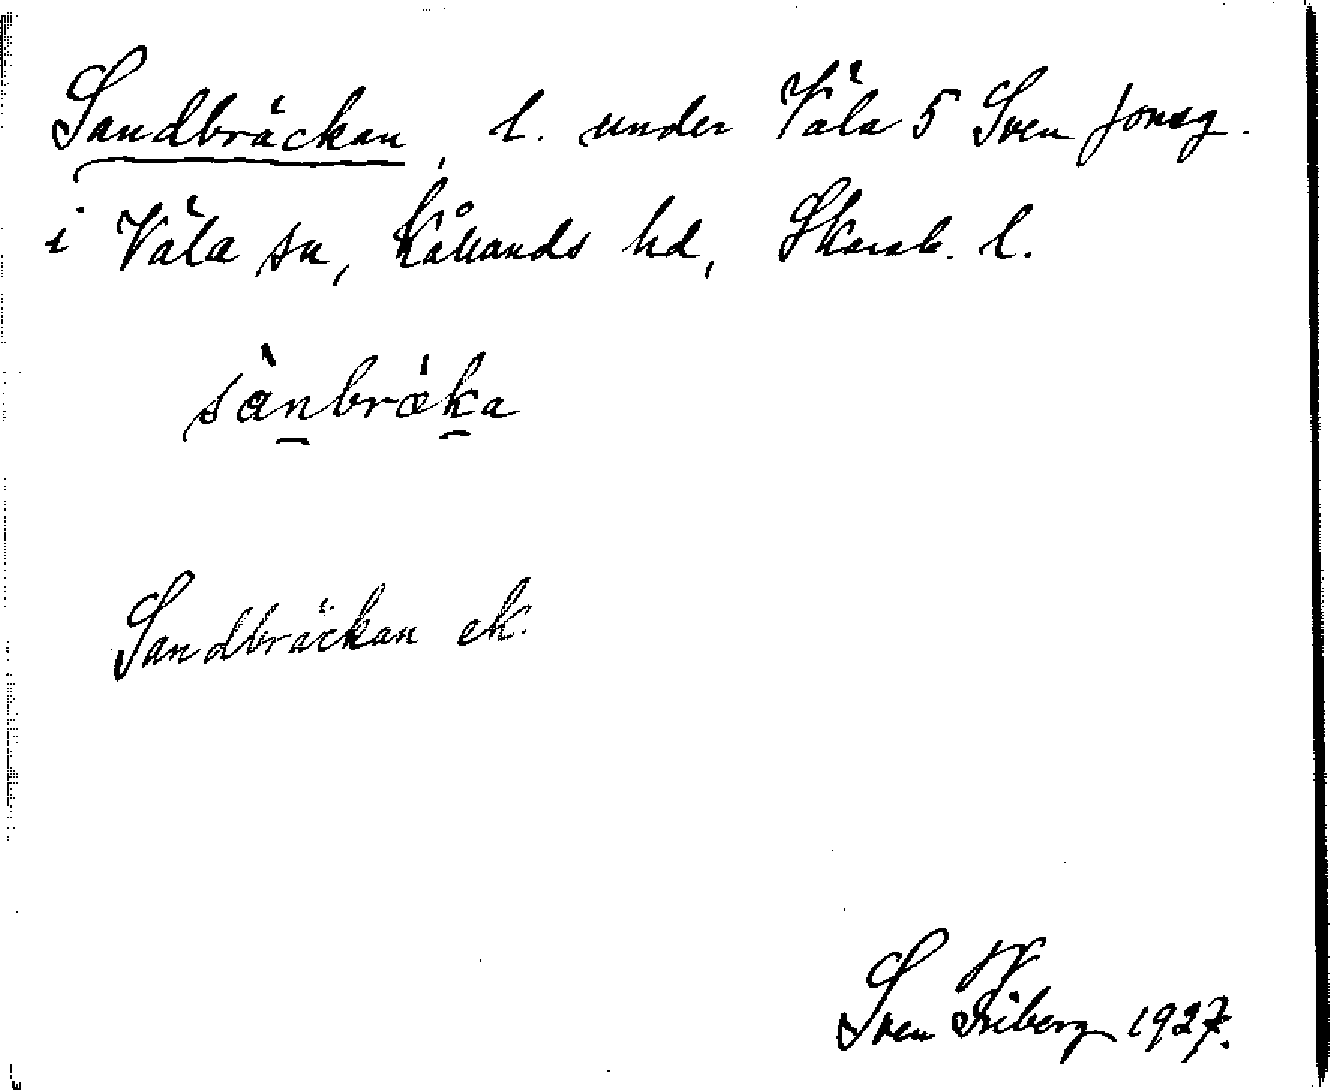 Sandbräckan, l. under Väla 5 Sven Jonsg.
i Väla sn, Kåkands hd, Skarab. l.
sànbräka
Sandbräckan ek.
Sven Friberg 1927.